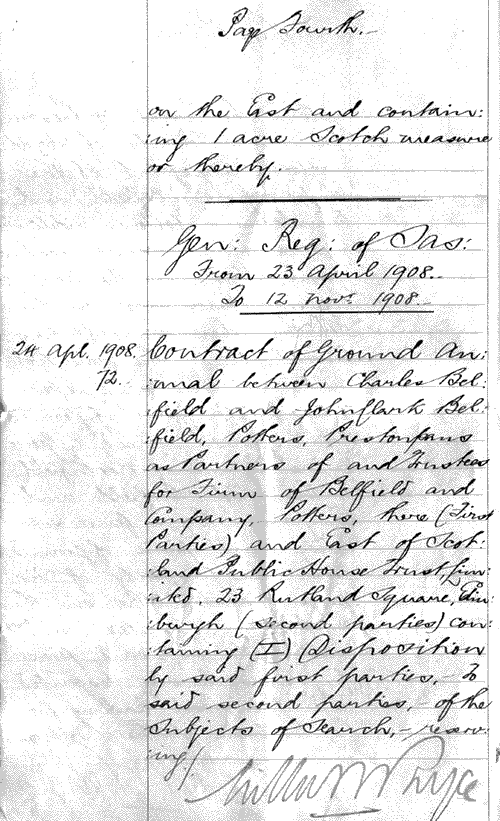 Page Fourth.-
on the East and contain:
:ing 1 acre Scotch measure
or thereby.
Gen: Reg: of Sas:
From 23 April 1908.
To 12 Novr. 1908.
24 Apl. 1908. Contract of Ground An:
72. :nual between Charles Bel-
:field and John Clark Bel-
:field, Potters, Prestonpans
as Partners of and Trustees
for Firm of Belfield and
Company, Potters, there (First
Parties) and East of Scot-
:land Public House Trust, Lim
:ited. 23 Rutland Square, Edin
:burgh (second parties) con:
:taining (I) (Disposition
by said first parties, - To
said second parties, - of the
Subjects of Search, - reserv:
:ing/